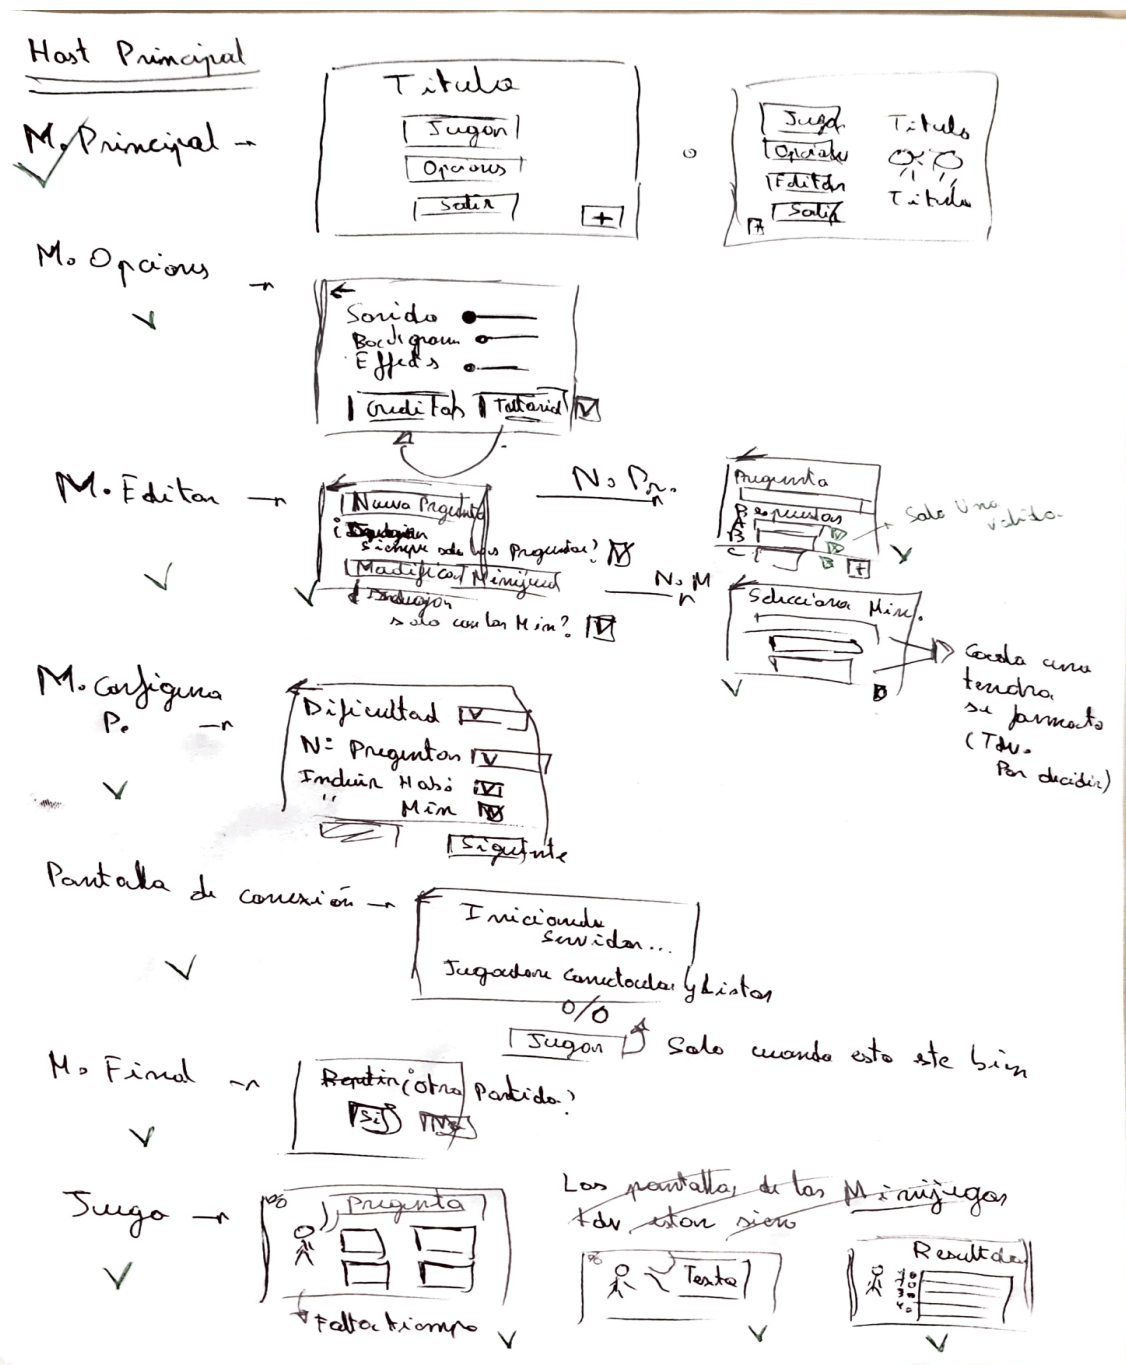 Host Principal
M. Principal
Titulo
Jugar
Opciones
Salir
+
o
Jugar
Opciones
Editar
Salir
+
Titulo
Titulo
M. Opciones
Sonido
Background
Effects
Creditos
Tutorial
M. Editar
Nueva Pregunta
siempre solo las Preguntas?
Modificar Minijuego
solo con los Min?
N. Pr.
Pregunta
Respuestas
A
B
C
+
Solo Una
valida.
N. M
Selecciona Min.
Cada una
tendra
su formato
(Tdv.
Por decidir)
M. Configura
P.
Dificultad
Nº Preguntas
Incluir Habi
" Min
Siguiente
Pantalla de conexión
Iniciando
Servidor...
Jugadores conectados y Listos
0/0
Jugar
Solo cuando esto este bien
M. Final
¿otra Partida?
Si
No
Juego
Pregunta
Falta tiempo
Las pantallas de los Minijuegos
tdv estan
Texto
Resultados
1
2
3
4